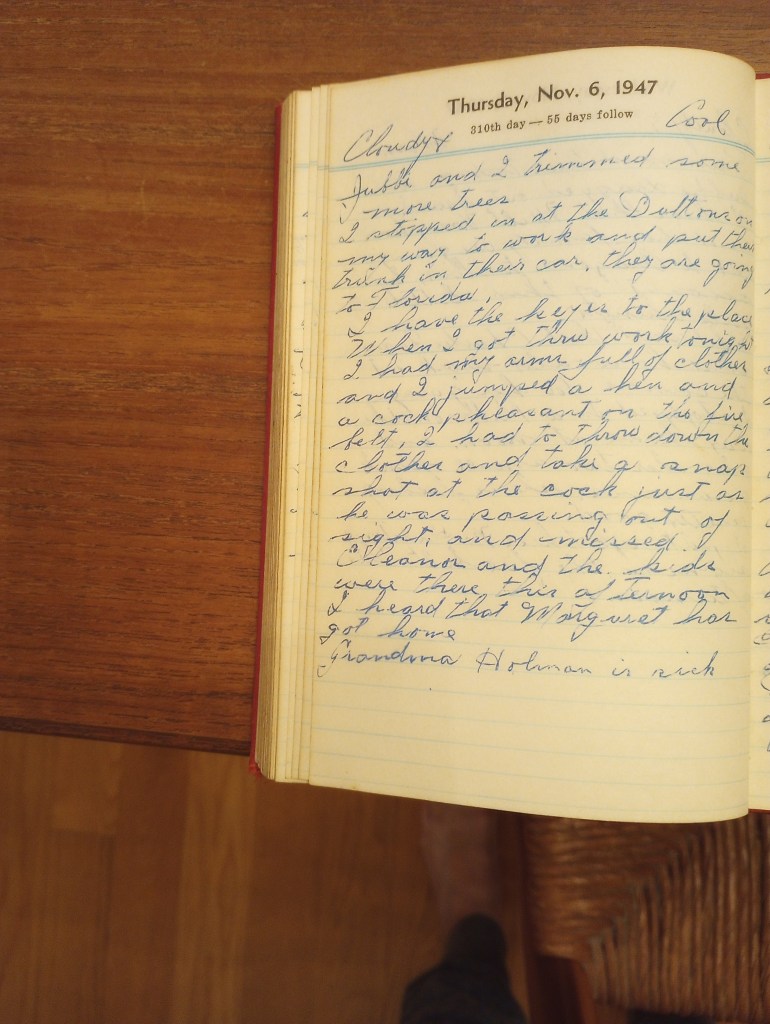 Thursday, Nov. 6, 1947
310th day — 55 days follow
Cloudy & Cool
and I trimmed some
more trees
I stopped in at the Duttons on
my way to work and put their
trunk in their car, they are going
to Florida.
I have the keyes to the place
When I got thru work tonight
I had my arms full of clothes
and I jumped a hen and
a cock pheasant on the fire
belt, I had to throw down the
clothes and take a snap
shot at the cock just as
he was passing out of
sight, and missed.
Eleanor and the kids
were there this afternoon
I heard that Margaret has
got home
Grandma Holman is sick